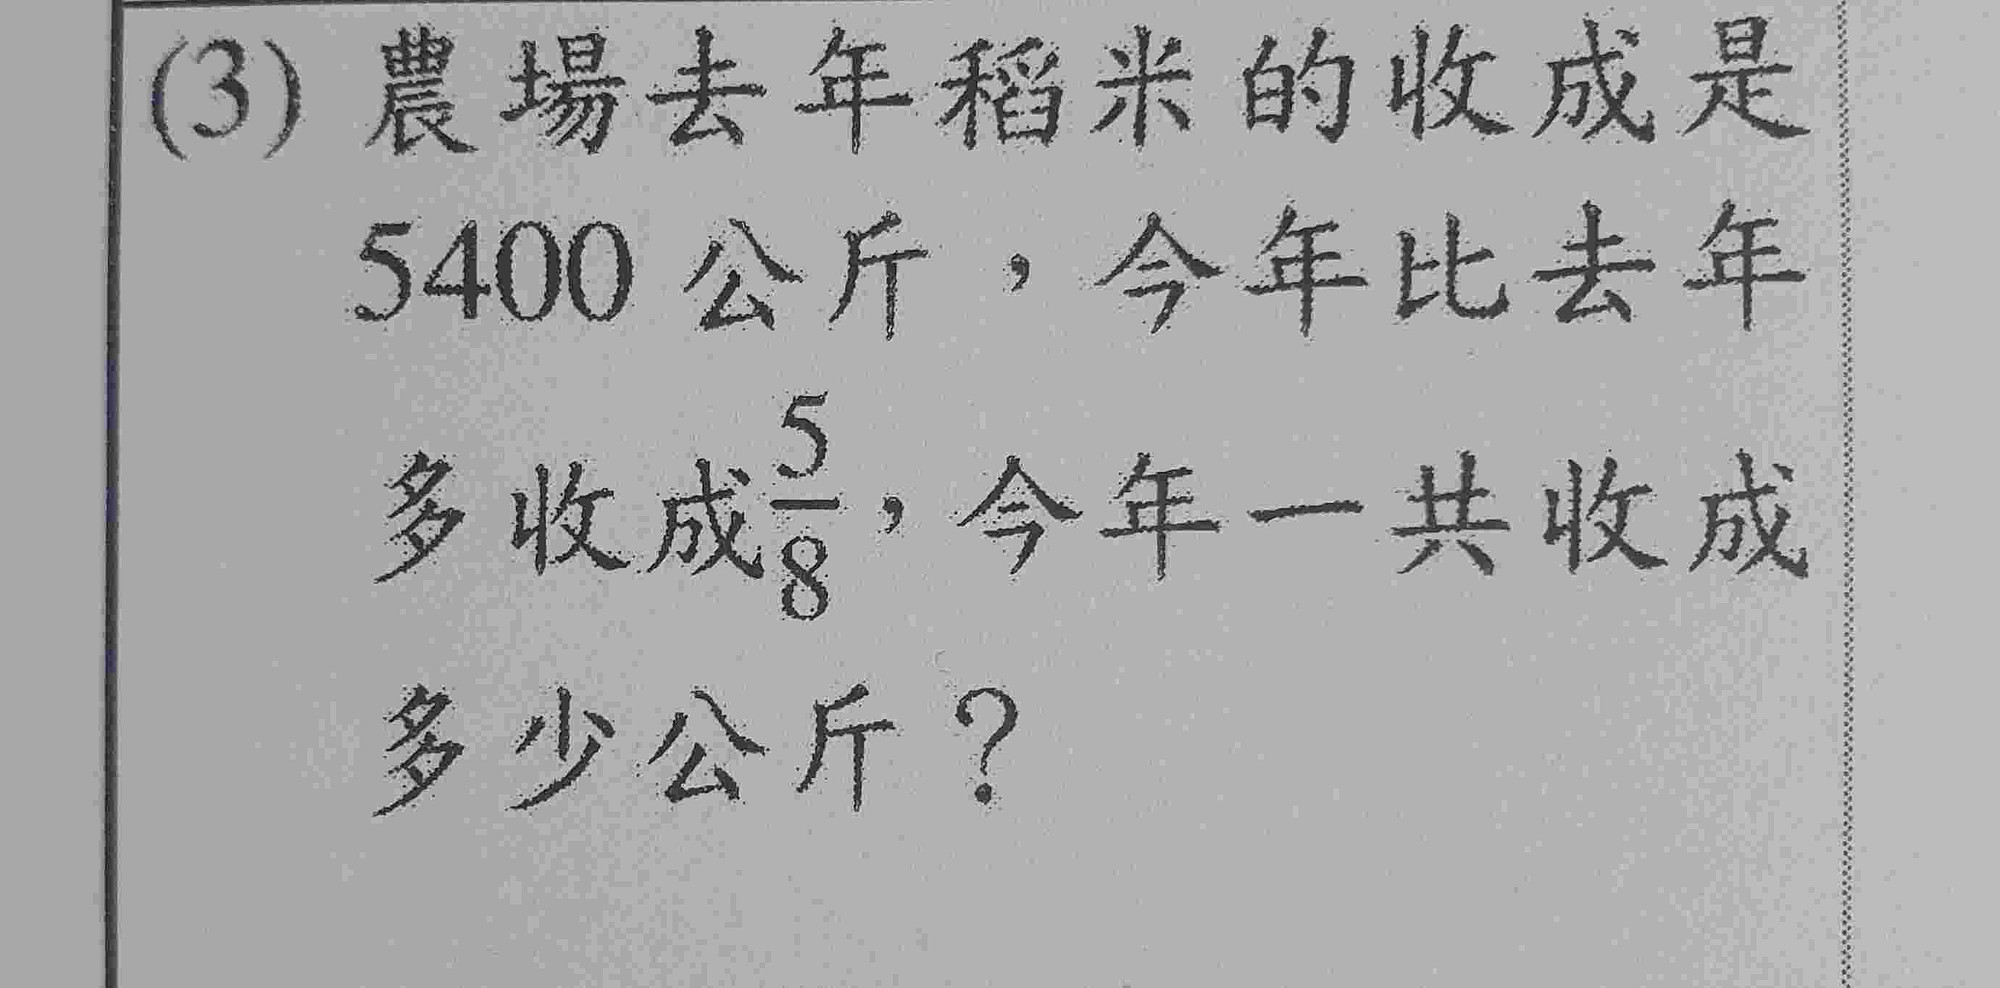 (3) 農場去年稻米的收成是
5400 公斤，今年比去年
多收成5/8，今年一共收成
多少公斤？